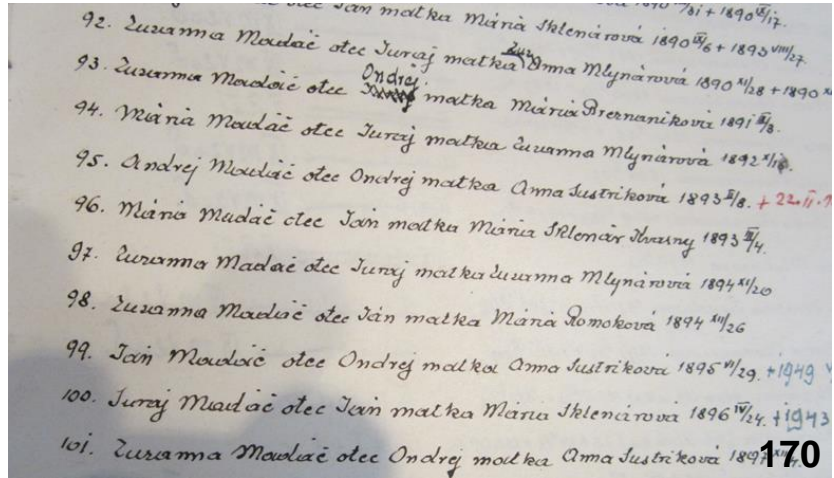 otec Ján matka Mária Sklenárová 1890 /31 + 1890 /17.
92. Zuzanna Madáč otec Juraj matka Zuz Anna Mlynárová 1890 XI/28 + 1890
93. Zuzanna Madáč otec Ondrej matka Mária Breznaniková 1891 /3.
94. Mária Madáč otec Juraj matka Zuzanna Mlynárová 1892
95. Andrej Madáč otec Ondrej matka Anna Šustriková 1893 II/8. + 22.II.
96. Mária Madáč otec Ján matka Mária Sklenár Kvasny 1893 /4.
97. Zuzanna Madáč otec Juraj matka Zuzanna Mlynárová 1894 XI/20
98. Zuzanna Madáč otec Ján matka Mária Romoková 1894 XII/26
99. Ján Madáč otec Ondrej matka Anna Šustriková 1895 VI/29. +1949 V
100. Juraj Madáč otec Ján matka Mária Sklenárová 1896 IV/24. +1943
101. Zuzanna Madáč otec Ondrej matka Anna Šustriková
170